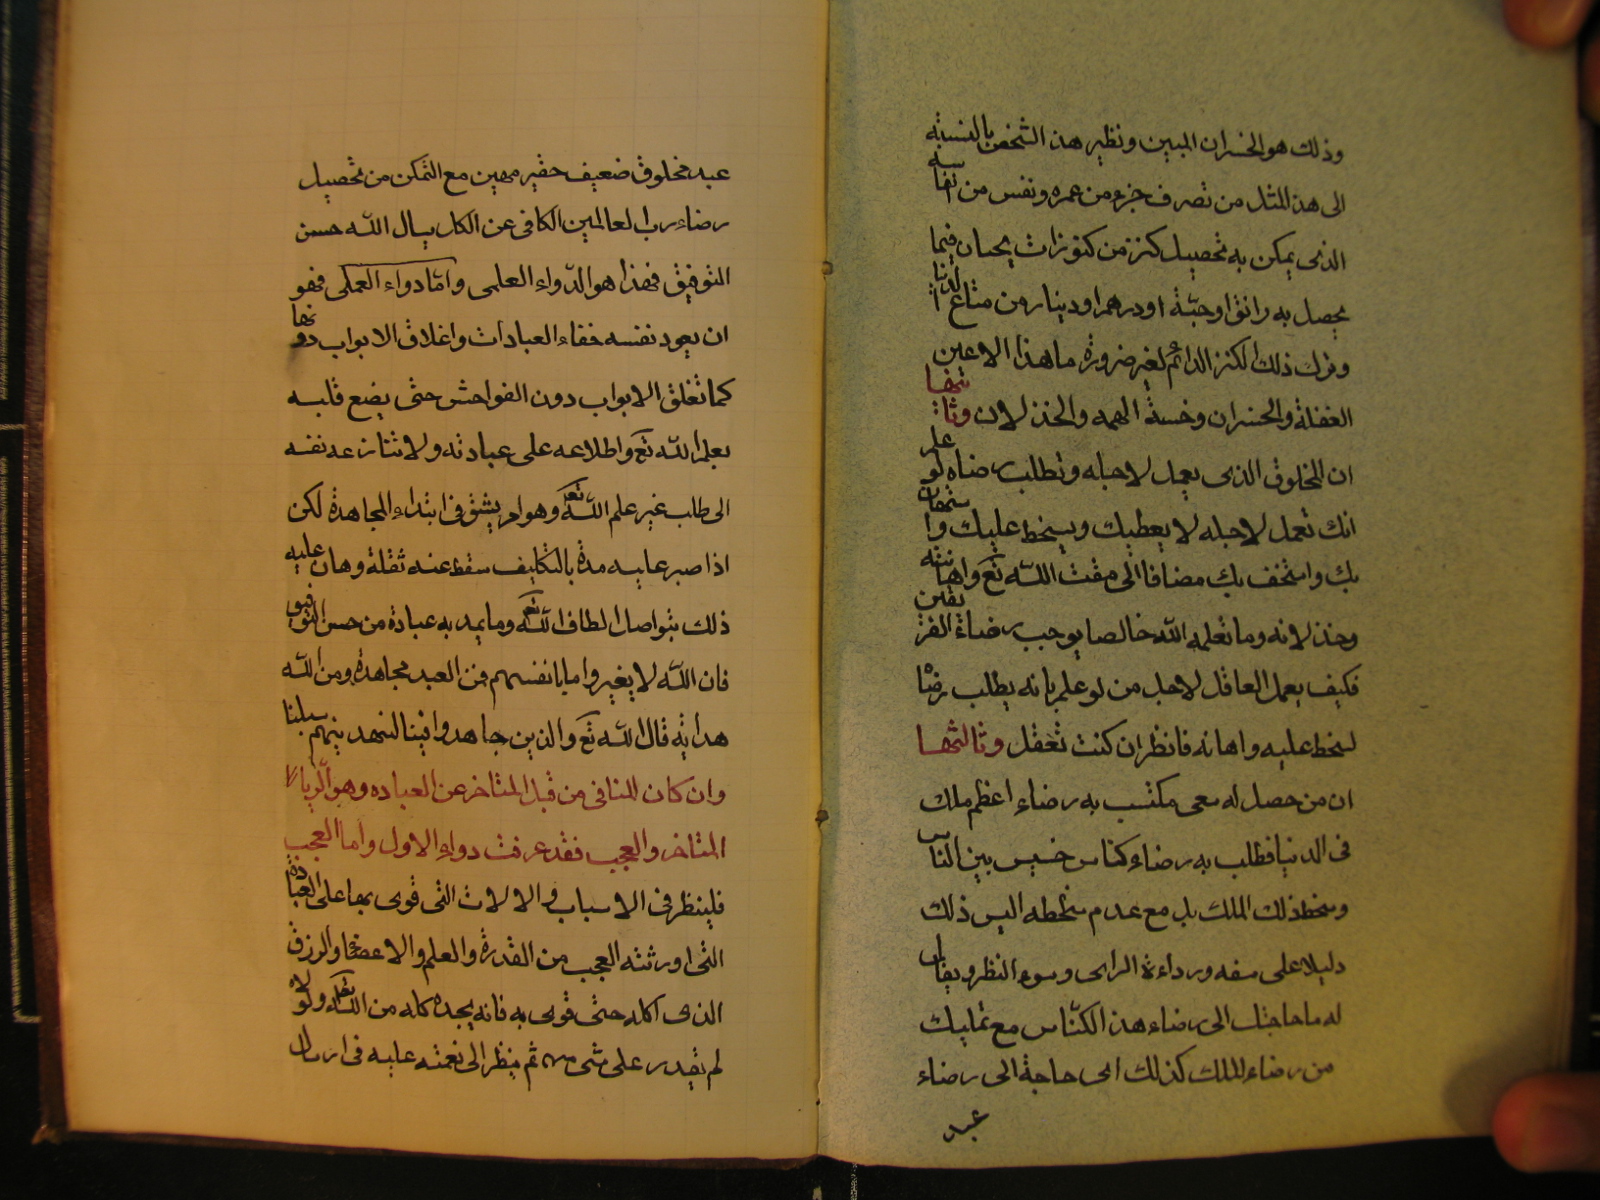 وذلك هو الخسران المبين ونظير هذا الشخص بالنسبة
الى هذ المثل من تصرف جزء من عمره ونفس من انفاسه
الذى يمكن به تحصيل كنز من كنوزات يحيان فيما
يحصل به رانق اوحبّة او درهم او دينار من متاع الدنيا
وترك ذلك الكنز الدائم لغير ضرورة ما هذا الا عين
الغفلة والخسران وخسة الهمه والخذلان وثانيها
ان المخلوق الذى يعمل لاجله وتطلب رضاه لو علم
انك تعمل لاجله لا يعطيك ويسخط عليك واستهان
بك واستخف بك مضافا الى مقت اللّه تع واهانته
وخذلانه وما تعلمه اللّه خالصا يوجب رضاء الفريقين
فكيف يعمل العاقل لاجل من لو علم بانه يطلب رضاه
لسخط عليه واهانه فانظر ان كنت تعقل وثالثها
ان من حصل له سعى مكتسب به رضاء اعظم ملك
فى الدنيا فطلب به رضاء كناس خسيس بين الناس
وسخط ذلك الملك بل مع عدم سخطه اليس ذلك
دليلا على سفه ورداءة الراى وسوء النظر ويقال
له ما حاجتك الى رضاء هذ الكنّاس مع تمليك
من رضاء الملك كذلك اى حاجة الى رضاء
عبد
عبد مخلوق ضعيف حقير مهين مع التمكن من تحصيل
رضاء رب العالمين الكافى عن الكل يسال اللّه حسن
التوفيق فهذا هو الدّواء العلمى وامّا دواء العملى فهو
ان يعود نفسه خفاء العبادات واغلاق الابواب دونها
كما تغلق الابواب دون الفواحش حتى يضع قلبه
بعلم اللّه تع واطلاعه على عبادته ولا تنازعه نفسه
الى طلب غير علم اللّه تع وهو امر يشق فى ابتداء المجاهدة لكن
اذا صبر عليه مدة بالتكليف سقط عنه ثقلة وهان عليه
ذلك بتواصل الطاف اللّه تع وما يمد به عبادة من حسن التوفيق
فان اللّه لا يغير وا ما بانفسهم فمن العبد مجاهدة ومن اللّه
هداية قال اللّه تع والذين جاهدوا فينا لنهدينهم سبلنا
وان كان المنافى من قبل المتاخر عن العباده وهو الريا
المتاخر والعجب فقد عرفت دواء الاول واما العجب
فلينظر فى الاسباب والالات التى قوى بها على العبادة
التى اورثته العجب من القدرة والعلم والاعضاء والرزق
الذى اكله حتى قوى به فانه يجده كله من اللّه تع ولولاه
لم يقدر على شى منه ثم ينظر الى نعمته عليه فى ارسال